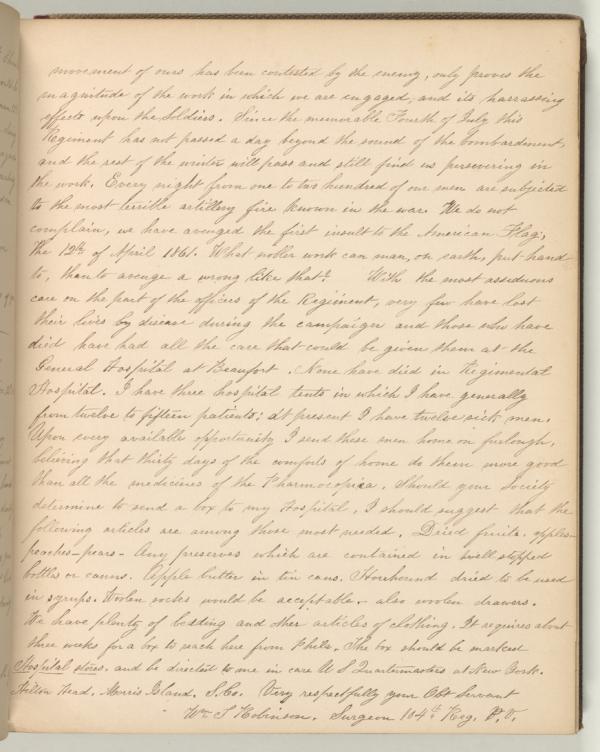 movement of ours has been contested by the enemy, only proves the
magnitude of the work in which we are engaged, and its harrassing
effects upon the Soldiers. Since the memorable Fourth of July this
Regiment has not passed a day beyond the sound of the bombardment,
and the rest of the winter will pass and still find us persevering in
the work. Every night from one to two hundred of our men are subjected
to the most terrible artillery fire known in the war. We do not
complain, we have avenged the first insult to the American Flag,
the 12th of April 1861. What nobler work can man, on earth, put hand
to, than to avenge a wrong like that? With the most assiduous
care on the part of the officers of the Regiment, very few have lost
their lives by disease during the campaign and those who have
died have had all the care that could be given them at the
General Hospital at Beaufort. None have died in Regimental
Hospital. I have three hospital tents in which I have generally
from twelve to fifteen patients; at present I have twelve sick men.
Upon every available opportunity I send these men home on furlough,
believing that thirty days of the comforts of home do them more good
than all the medicines of the Pharmocopiea. Should your Society
determine to send a box to my Hospital, I should suggest that the
following articles are among those most needed. Dried fruits. apples-
peaches-pears- Any preserves which are contained in well stopped
bottles or canns. Apple butter in tin cans. Horehound dried to be used
in syrups. Woolen socks would be acceptable. also woolen drawers.
We have plenty of bedding and other articles of clothing. It requires about
three weeks for a box to reach here from Phila. The box should be marked
Hospital stores. and be directed to me in care U S Quartermasters at New York.
Hilton Head. Morris Island, S.Co. Very respectfully your Obt Servant
Wm T Robinson. Surgeon 104th Reg. P.V.